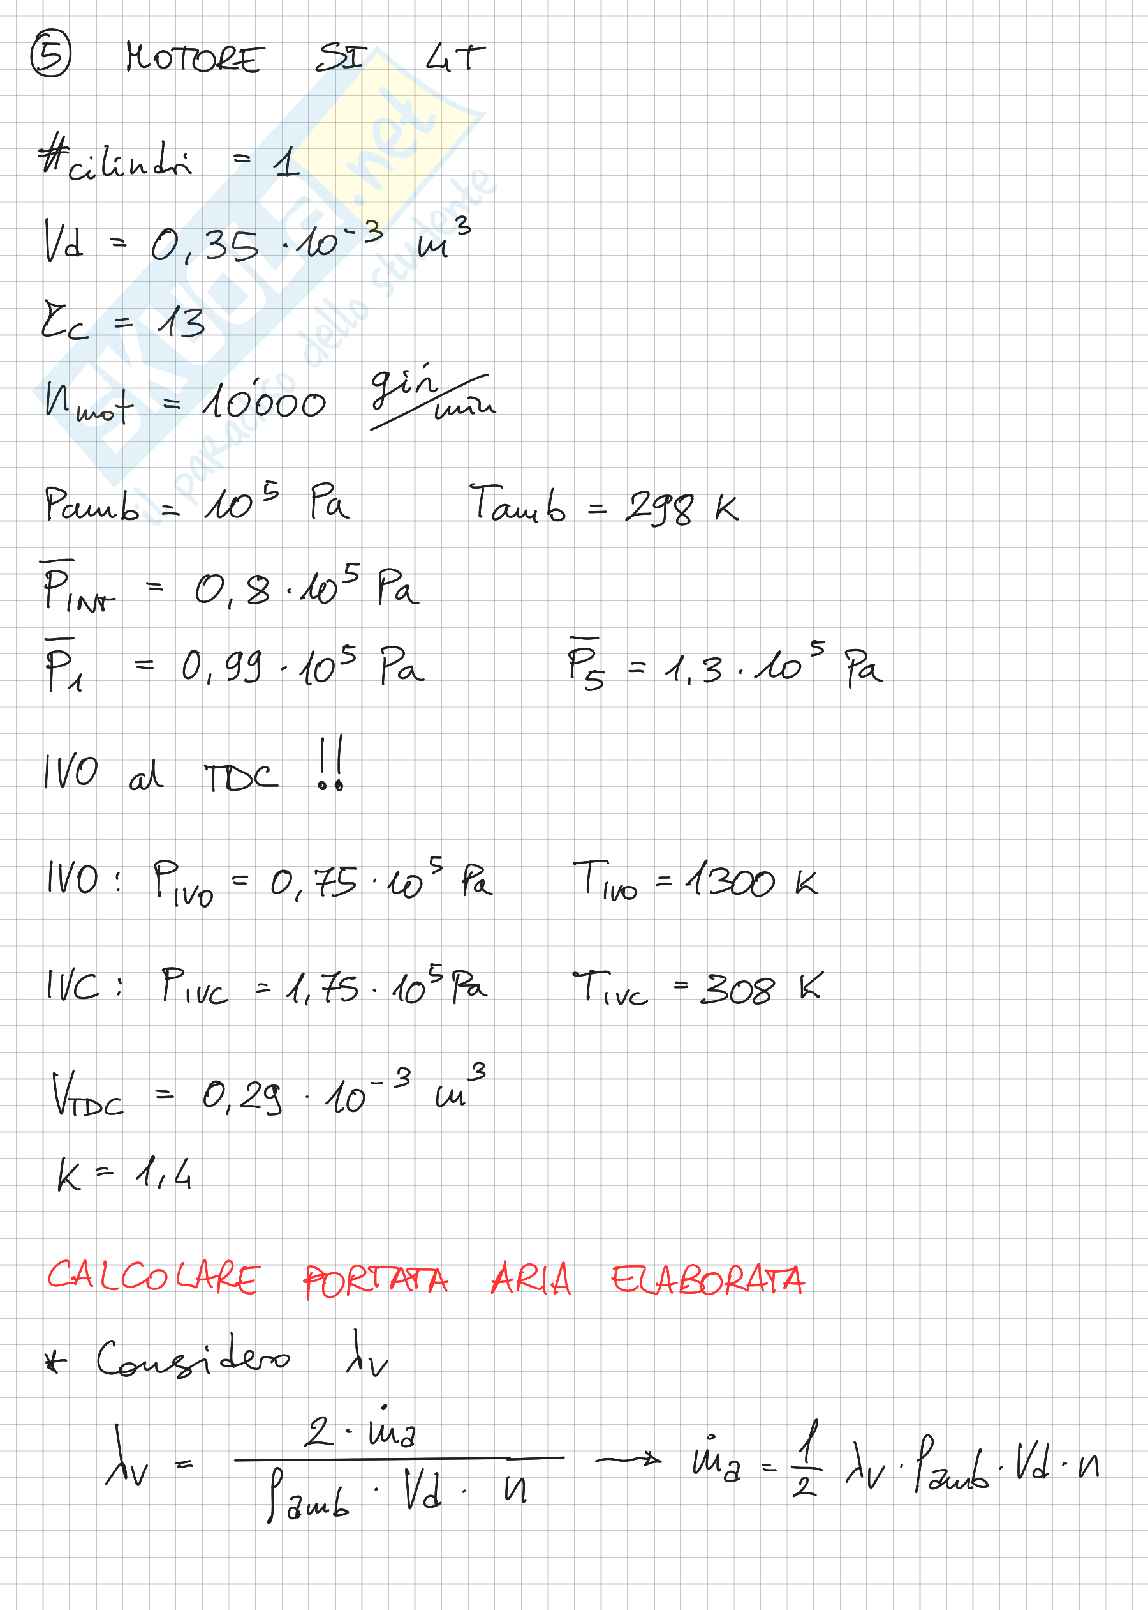 ⑤ MOTORE SI 4T
#cilindri = 1
Vd = 0,35 · 10⁻³ m³
τc = 13
nmot = 10'000 giri/min
Pamb = 10⁵ Pa Tamb = 298 K
P̅INT = 0,8 · 10⁵ Pa
P̅1 = 0,99 · 10⁵ Pa P̅5 = 1,3 · 10⁵ Pa
IVO al TDC !!
IVO : PIVO = 0,75 · 10⁵ Pa TIVO = 1300 K
IVC : PIVC = 1,75 · 10⁵ Pa TIVC = 308 K
VTDC = 0,29 · 10⁻³ m³
K = 1,4
CALCOLARE PORTATA ARIA ELABORATA
* Considero λv
λv = 2 · ṁa / ρamb · Vd · n → ṁa = 1/2 λv · ρamb · Vd · n
SKUOLA.net
il paradiso dello studente